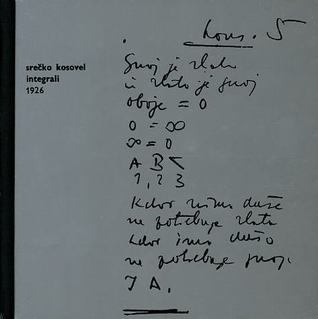 srečko kosovel
integrali
1926
Kons. 5
Gnoj je zlato
in zlato je gnoj
oboje = 0
0 = ∞
∞ = 0
A B <
1, 2, 3
Kdor nima duše
ne potrebuje zlata
kdor ima dušo
ne potrebuje gnoja
I A.